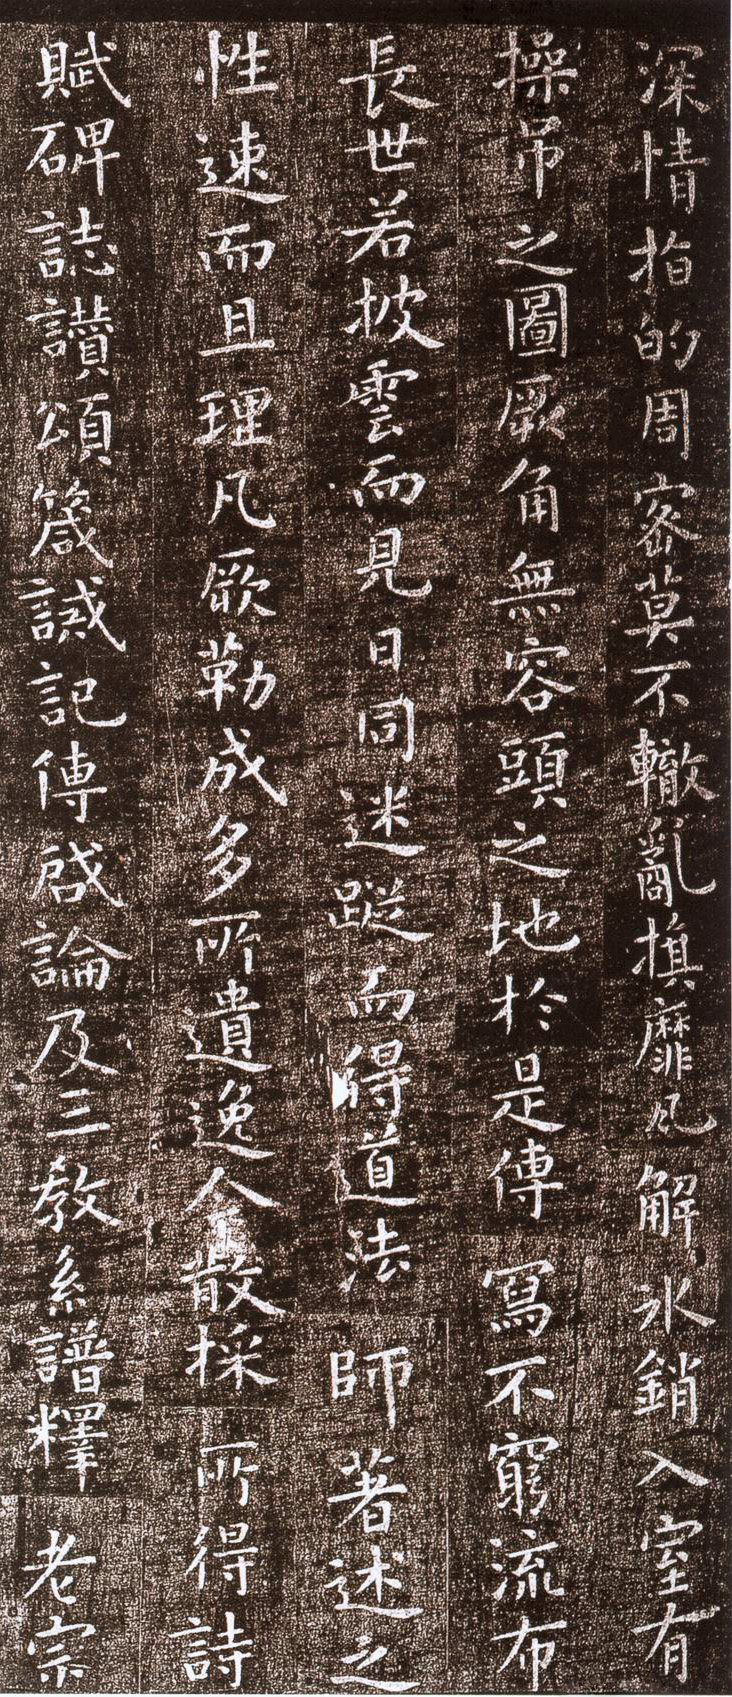 深情指的周密莫不轍亂旗靡風解冰銷入室有
操吊之圖厥角無容頭之地於是傳寫不窮流布
長世若披雲而見日同迷蹤而得道法師著述之
性速而且理凡厥勒成多所遺逸人散採所得詩
賦碑誌讚頌箴誡記傳啟論及三教系譜釋老宗